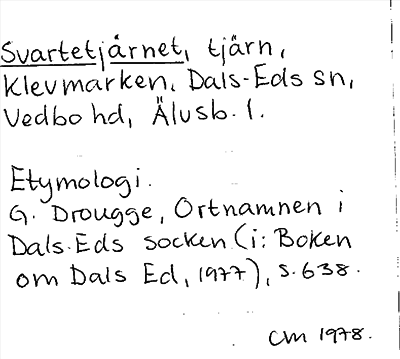 Svartetjärnet, tjärn,
Klevmarken, Dals-Eds sn,
Vedbo hd, Älvsb. l.
Etymologi.
G. Drougge, Ortnamnen i
Dals-Eds socken (i: Boken
om Dals Ed, 1977), s. 638.
CM 1978.